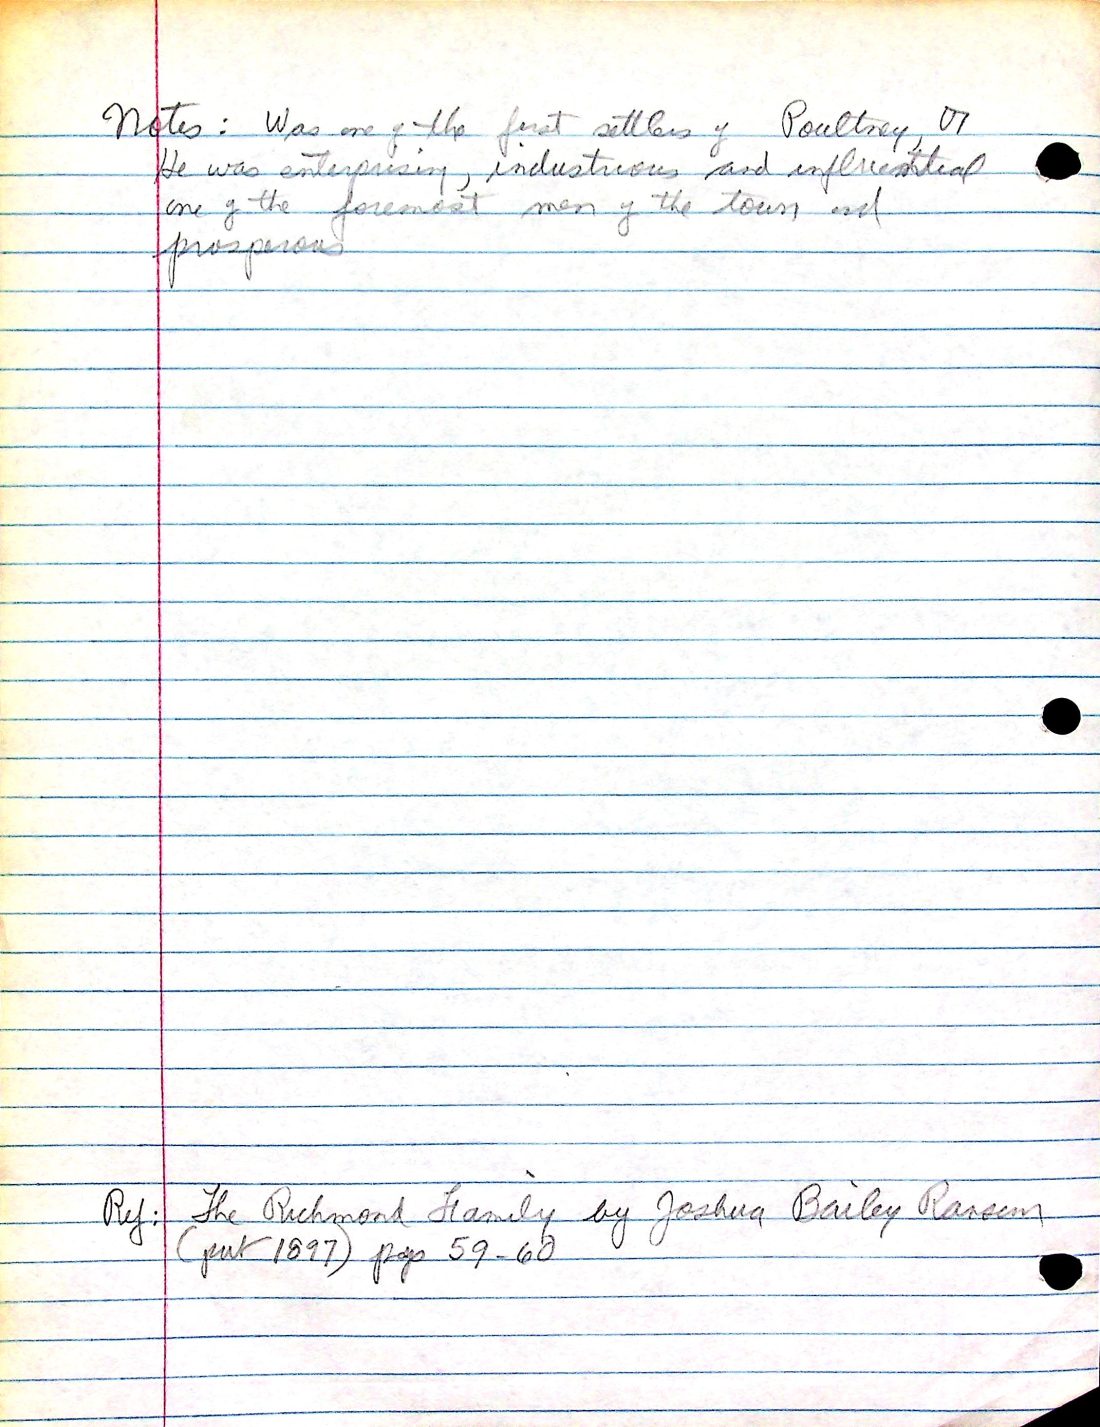 Notes: Was one of the first settlers of Poultney, VT
He was enterprising, industruous and influential
one of the foremost men of the town and
prosperous
Ref: The Richmond Family by Joshua Bailey
(put 1897) pgs 59-60